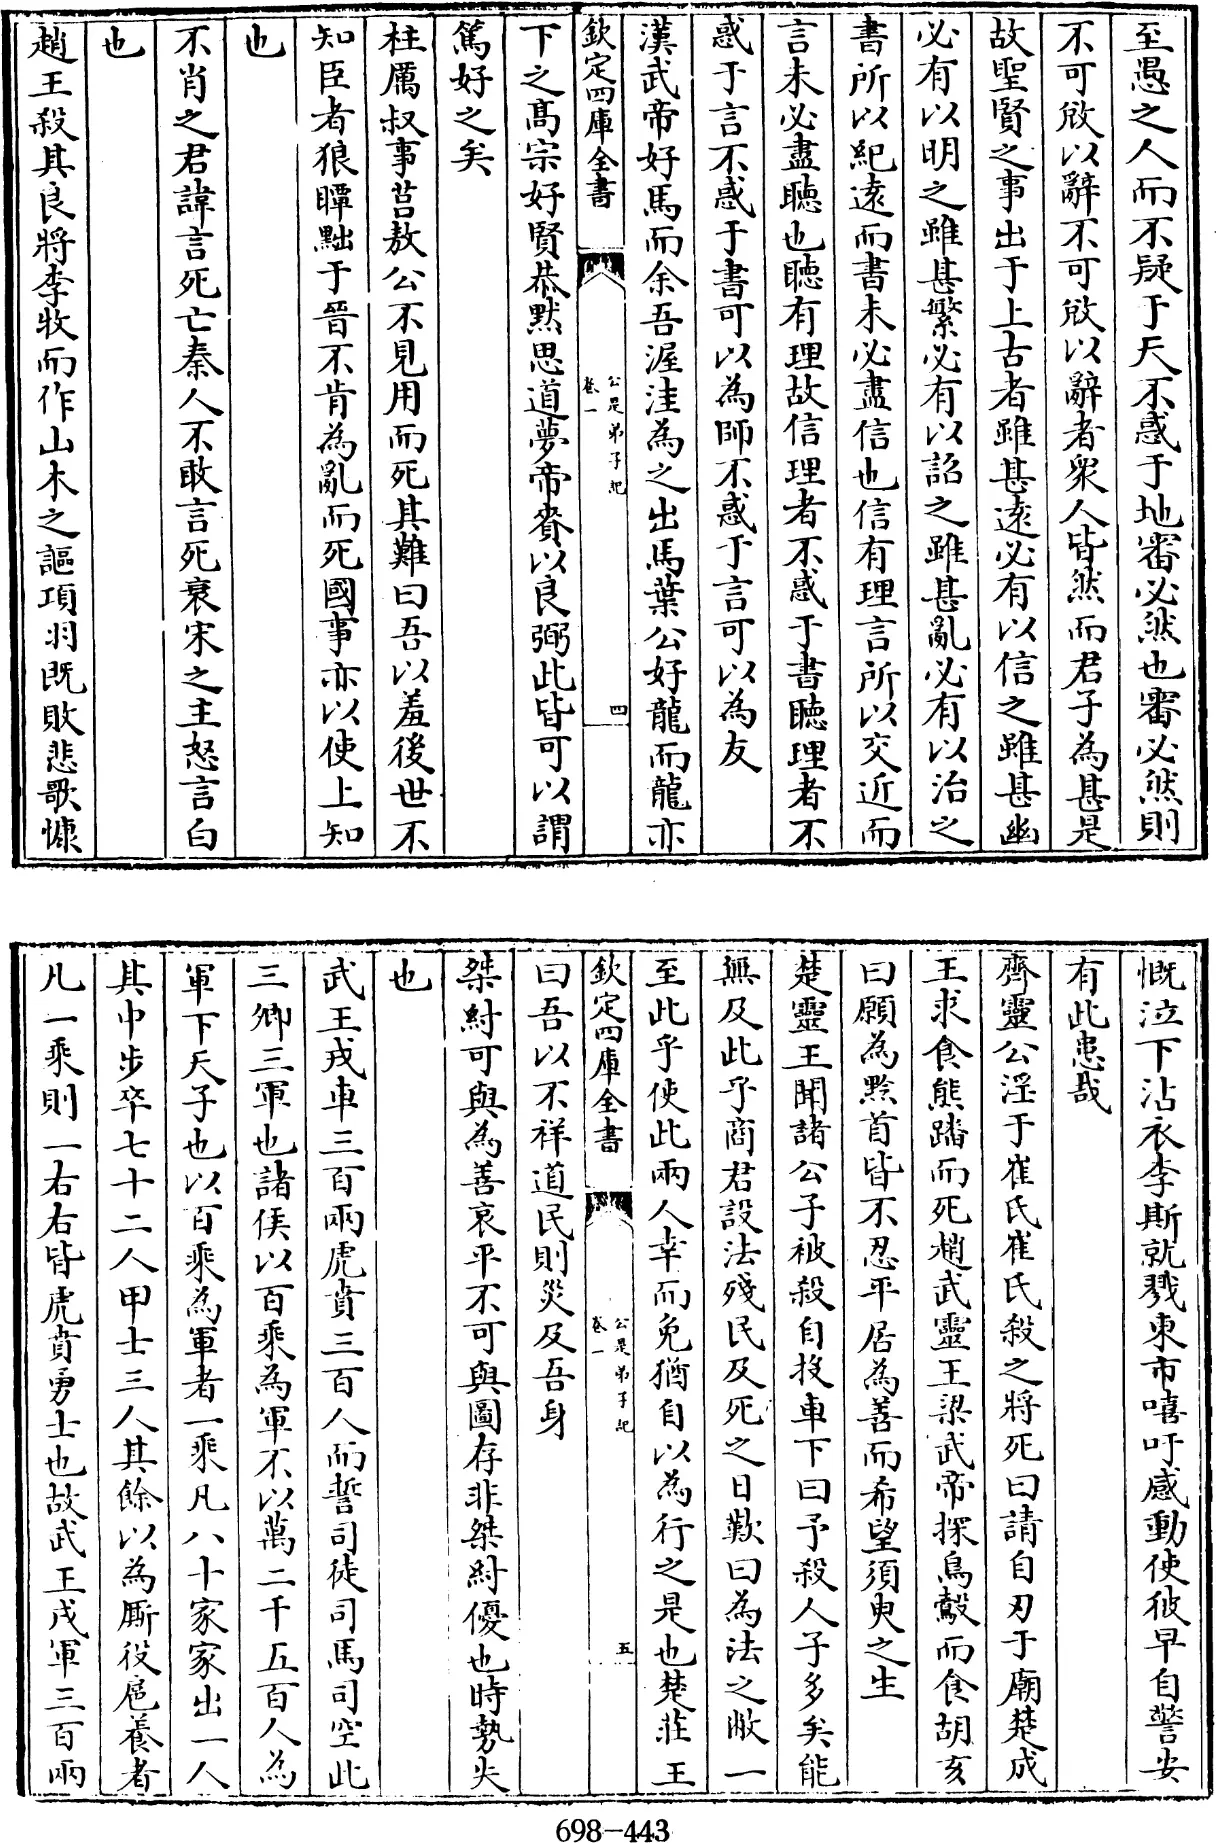 至愚之人而不疑于天不惑于地審必然也審必然則
不可啟以辭不可啟以辭者衆人皆然而君子為甚是
故聖賢之事出于上古者雖甚逺必有以信之雖甚幽
必有以明之雖甚繁必有以詔之雖甚亂必有以治之
書所以紀逺而書未必盡信也信有理言所以交近而
言未必盡聴也聴有理故信理者不惑于書聴理者不
惑于言不惑于書可以為師不惑于言可以為友
漢武帝好馬而余吾渥洼為之出馬葉公好龍而龍亦
欽定四庫全書
公是弟子記
卷一
四
下之髙宗好賢恭默思道夢帝賚以良弼此皆可以謂
篤好之矣
柱厲叔事莒敖公不見用而死其難曰吾以羞後世不
知臣者狼瞫黜于晉不肯為亂而死國事亦以使上知
也
不肖之君諱言死亡秦人不敢言死衰宋之主怒言白
也
趙王殺其良將李牧而作山木之謳項羽既敗悲歌慷
慨泣下沾衣李斯就戮東市嘻吁感動使彼早自警安
有此患哉
齊靈公淫于崔氏崔氏殺之將死曰請自刃于廟楚成
王求食熊蹯而死趙武靈王梁武帝探鳥鷇而食胡亥
曰願為黔首皆不忍平居為善而希望須臾之生
楚靈王聞諸公子被殺自投車下曰予殺人子多矣能
無及此乎商君設法殘民及死之日歎曰為法之敝一
至此乎使此兩人幸而免猶自以為行之是也楚莊王
欽定四庫全書
公是弟子記
卷一
五
曰吾以不祥道民則災及吾身
桀紂可與為善哀平不可與圖存非桀紂優也時勢失
也
武王戎車三百兩虎賁三百人而誓司徒司馬司空此
三卿三軍也諸侯以百乘為軍不以萬二千五百人為
軍下天子也以百乘為軍者一乘凡八十家家出一人
其中步卒七十二人甲士三人其餘以為厮役扈養者
凡一乘則一右右皆虎賁勇士也故武王戎軍三百兩
698-443